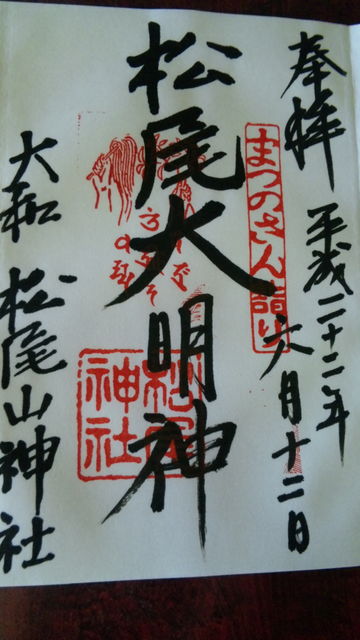 奉拝
平成二十二年
六月十二日
まつのさん詣り
松尾大明神
松尾
神社
大和
松尾山神社